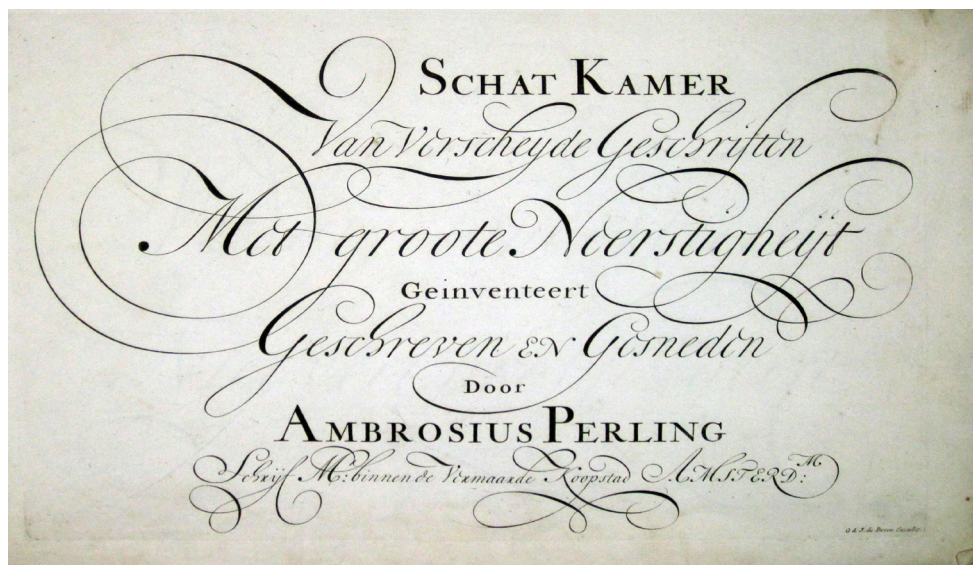 SCHAT KAMER
Van Verscheyde Geschriften
Met groote Neerstigheijt
Geinventeert
Geschreven EN Gesneden
Door
AMBROSIUS PERLING
Schrijf Mr: binnen de Vermaarde Koopstad AMSTERDM: